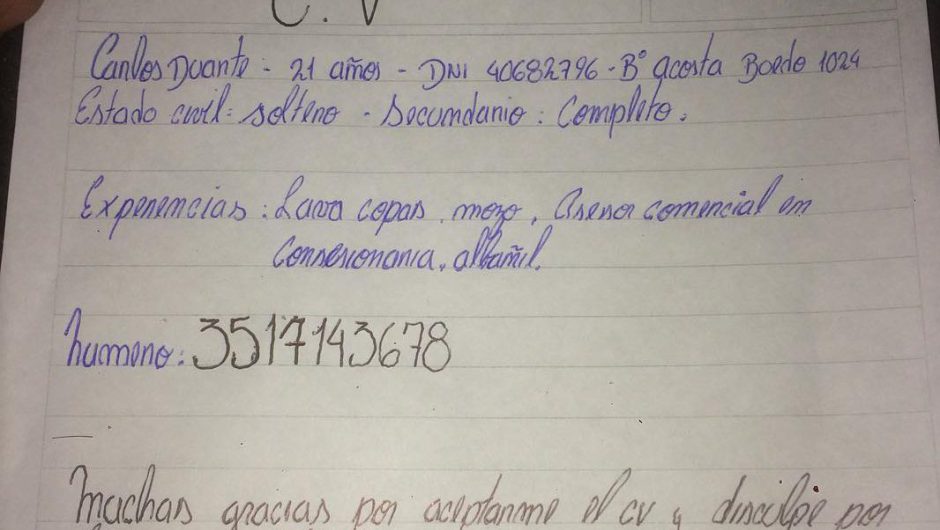 C.V
Carlos Duarte - 21 años - DNI 40682796 - B° acosta Boedo 1024
Estado civil: soltero - Secundario: Completo.
Experiencias: Lava copas, mozo, Asesor comercial en
Consesionaria, albañil.
numero: 3517143678
Muchas gracias por aceptarme el cv y disculpe por